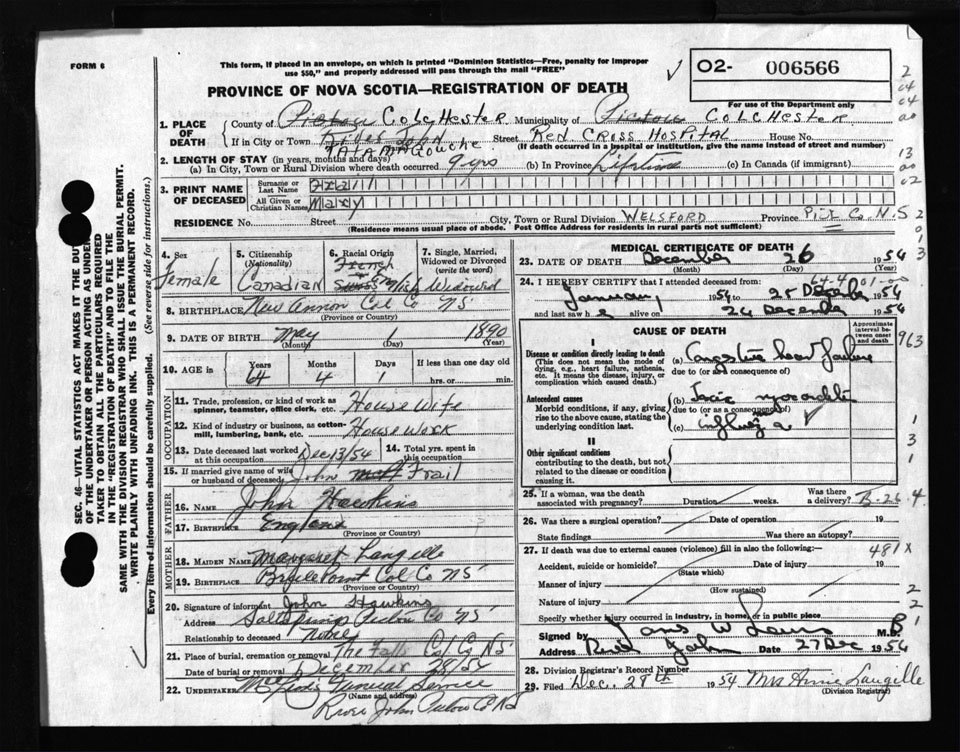 FORM 6
This form, if placed in an envelope, on which is printed "Dominion Statistics—Free, penalty for improper
use $50," and properly addressed will pass through the mail "FREE"
PROVINCE OF NOVA SCOTIA—REGISTRATION OF DEATH
O2- 006566
For use of the Department only
1. PLACE OF DEATH
County of Pictou COLCHESTER Municipality of Pictou COLCHESTER
If in City or Town River John TATAMAGOUCHE Street RED CROSS HOSPITAL House No.
(If death occurred in a hospital or institution, give the name instead of street and number)
2. LENGTH OF STAY (in years, months and days)
(a) In City, Town or Rural Division where death occurred 9 yrs (b) In Province Lifetime (c) In Canada (if immigrant)
3. PRINT NAME OF DECEASED
Surname or Last Name
All Given or Christian Names Mary
RESIDENCE No. Street City, Town or Rural Division WELSFORD Province Pict Co. N.S
(Residence means usual place of abode. Post Office Address for residents in rural parts not sufficient)
4. Sex Female
5. Citizenship (Nationality) Canadian
6. Racial Origin French
7. Single, Married, Widowed or Divorced (write the word) Widowed
8. BIRTHPLACE New Annan Col Co NS
(Province or Country)
9. DATE OF BIRTH May 1 1890
(Month) (Day) (Year)
10. AGE in Years 64 Months 4 Days 1 If less than one day hrs. or min.
OCCUPATION
11. Trade, profession, or kind of work as spinner, teamster, office clerk, etc. House Wife
12. Kind of industry or business, as cotton-mill, lumbering, bank, etc. House Work
13. Date deceased last worked at this occupation Dec 13/54
14. Total yrs. spent in this occupation
15. If married give name of wife or husband of deceased John Frail
FATHER
16. NAME John Hawkins
17. BIRTHPLACE England
(Province or Country)
MOTHER
18. MAIDEN NAME Margaret Langille
19. BIRTHPLACE Brule Point Col Co NS
(Province or Country)
20. Signature of informant John Hawkins
Address Salt Springs Pictou Co NS
Relationship to deceased None
21. Place of burial, cremation or removal The Falls Col Co NS
Date of burial or removal December 28/54
22. UNDERTAKER Funeral Service
(Name and address)
River John Pictou Co NS
MEDICAL CERTIFICATE OF DEATH
23. DATE OF DEATH December 26 1954
(Month) (Day) (Year)
24. I HEREBY CERTIFY that I attended deceased from:
January 1954 to 25 December 1954
and last saw h e alive on 24 December 1954
CAUSE OF DEATH
Approximate interval between onset and death
I
Disease or condition directly leading to death
(This does not mean the mode of dying, e.g., heart failure, asthenia, etc. It means the disease, injury, or complication which caused death.)
(a) Congestive heart failure
due to (or as a consequence of)
Antecedent causes
Morbid conditions, if any, giving rise to the above cause, stating the underlying condition last.
(b) Toxic myocarditis
due to (or as a consequence of)
(c) influenza
II
Other significant conditions
contributing to the death, but not related to the disease or condition causing it.
25. If a woman, was the death associated with pregnancy? Duration weeks. Was there a delivery?
26. Was there a surgical operation? Date of operation 19
State findings Was there an autopsy?
27. If death was due to external causes (violence) fill in also the following:—
481X
Accident, suicide or homicide? Date of injury 19
(State which)
Manner of injury
(How sustained)
Nature of injury
Specify whether injury occurred in industry, in home, or in public place
Signed by M.D.
Address River John Date 27 Dec 1954
28. Division Registrar's Record Number
29. Filed Dec. 28th 1954 Mrs Annie Langille
(Division Registrar)
SEC. 46—VITAL STATISTICS ACT MAKES IT THE DUTY
OF THE UNDERTAKER OR PERSON ACTING AS UNDER-
TAKER TO OBTAIN ALL THE PARTICULARS REQUIRED
IN THE "REGISTRATION OF DEATH" AND TO FILE THE
SAME WITH THE DIVISION REGISTRAR WHO SHALL ISSUE THE BURIAL PERMIT.
WRITE PLAINLY WITH UNFADING INK. THIS IS A PERMANENT RECORD.
Every item of information should be carefully supplied. (See reverse side for instructions.)